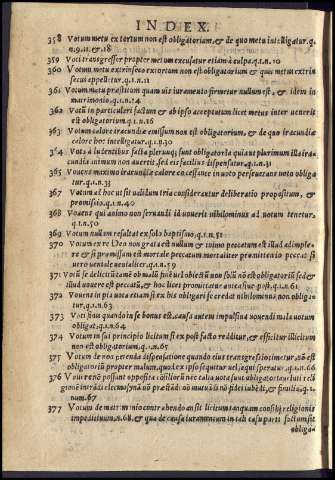 INDEX.
358 Votum metu extortum non est obligatorium, & de quo metu intelligatur. q.
n.9.11.& 18
359 Voti transgressor propter metum excusatur etiam à culpa. q.1.n.10
360 Votum metu extrinseco extortum non est obligatorium & quis metus extrin
secus appelletur. q.1.n.11
361 Votum metu præstitum quamuis iuramento firmetur nullum est, & idem in
matrimonio. q.1.n.14
362 Votū in particulari factum & ab ipso acceptatum licet metus inter uenerit
est obligatorium. q.1.n.16
363 Votum calore iracundiæ emissum non est obligatorium, & de quo iracundiæ
calore hoc intelligatur. q.1.n.30
364 Vota à iuuentibus facta plerunq; sunt obligatoria quia ut plurimum illa ira-
cundia animum non auertit, sed tis facilius dispensatur. q.1.n.31
365 Vouens maximo iracundiæ calore cocessante in uoto perseuerans noto obliga
tur. q.1.n.33
367 Votum ad hoc ut sit ualidum tria considerantur deliberatio propositum, &
promissio. q.1.n.40
368 Vouens qui animo non seruandi id uouerit nihilominus ad uotum tenetur.
q.1.n.50
369 Votum nullum resultat ex solo baptismo. q.1.n.51
370 Votum ex re Deo non grata est nullum & votum peccatum est illud adimple-
re & si promissum est mortale peccatum mortaliter promittendo peccat si
uero ueniale uenialiter. q.1.n.59
371 Votū se delicti tamē ob malū finē uel obiectū non solū nō est obligatoriū sed &
illud uouere est peccatū, & hoc licet promittatur ante a sine post. q.1.n.61
372 Vouens in pia uota etiam si ex his obligari se credat nihilominus non obliga-
tur. q.1.n.63
373 Voti finis quando in se bonus est, causa autem impulsiua uouendi mala uotum
obligat. q.1.n.64
374 Votum in sui principio licitum si ex post facto redditur, & efficitur illicitum
non est obligatorium. q.1.n.65
375 Votum de non petenda dispensatione quando eius transgressio timetur, nō est
obligatoriū propter malum, quod ex ipso sequitur uel, equi speratur. q.1.n.66
376 Vouere nō possunt opposita cōsiliorū nec talia uota sunt obligatoria ut uti reli
gionē inirādi elemosynā nō præstādi aū mutuādi nō fidei iubēdi, & similia. q.1.
num.67
377 Votum de matrimonio contrahendo an sit licitum tanquam consilijs religionis
impeditiuum, n.68, & qua de causa iuramentum in tali casu parti factum sit
obliga-